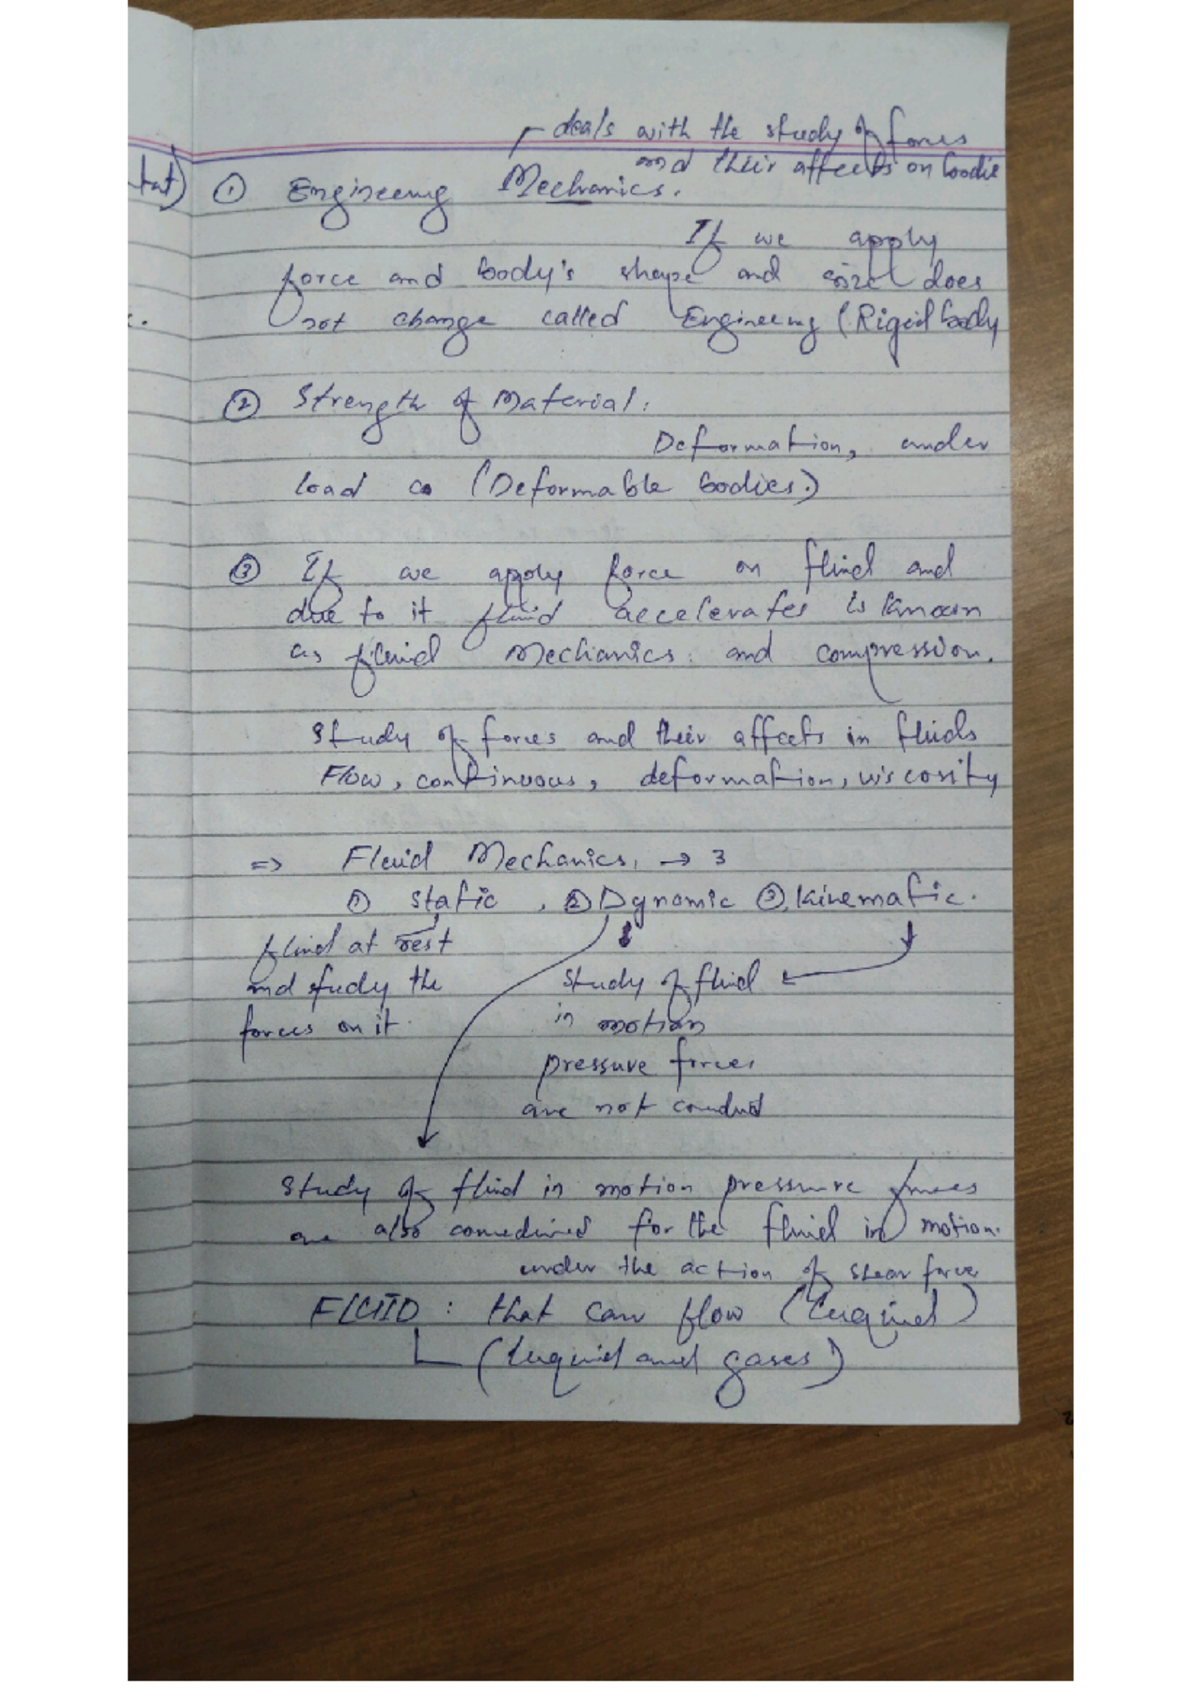 deals with the study of forces
and their affects on bodie
tat) ① Engineering Mechanics.
If we apply
force and body's shape and size does
not change called Engineering (Rigid body
② Strength of Material:
Deformation, under
load (Deformable bodies.)
③ If we apply force on fluid and
due to it fluid accelerates is known
as fluid Mechanics and compression.
Study of forces and their affects in fluids
Flow, continuous, deformation, viscosity
=> Fluid Mechanics, → 3
① static , ② Dynamic ③ Kinematic.
fluid at rest
and study the
forces on it.
study of fluid
in motion
pressure forces
are not
Study of fluid in motion pressure forces
are also for the fluid in motion.
under the action of shear force
FLUID : that can flow (Luquid)
(Luquid and gases)